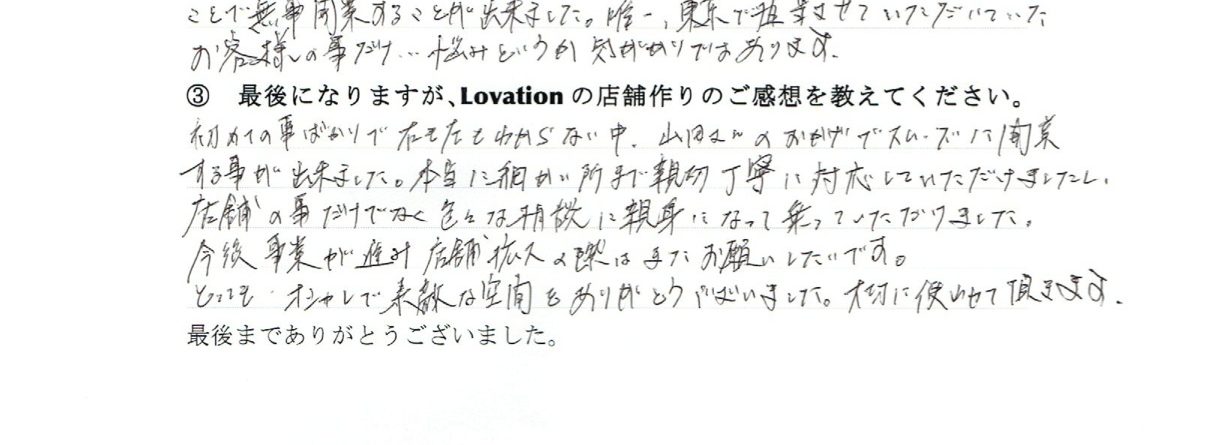 ことで無事開業することが出来ました。唯一、東京で担当させていただいていた
お客様の事だけ…悩みというか気がかりではあります。
③ 最後になりますが、Lovationの店舗作りのご感想を教えてください。
初めての事ばかりで右も左もわからない中、山田さんのおかげでスムーズに開業
する事が出来ました。本当に細かい所まで親切丁寧に対応していただけましたし、
店舗の事だけでなく色々な相談に親身になって乗っていただけました。
今後事業が進み店舗拡大の際はまたお願いしたいです。
とっても オシャレで素敵な空間をありがとうございました。大切に使わせて頂きます。
最後までありがとうございました。